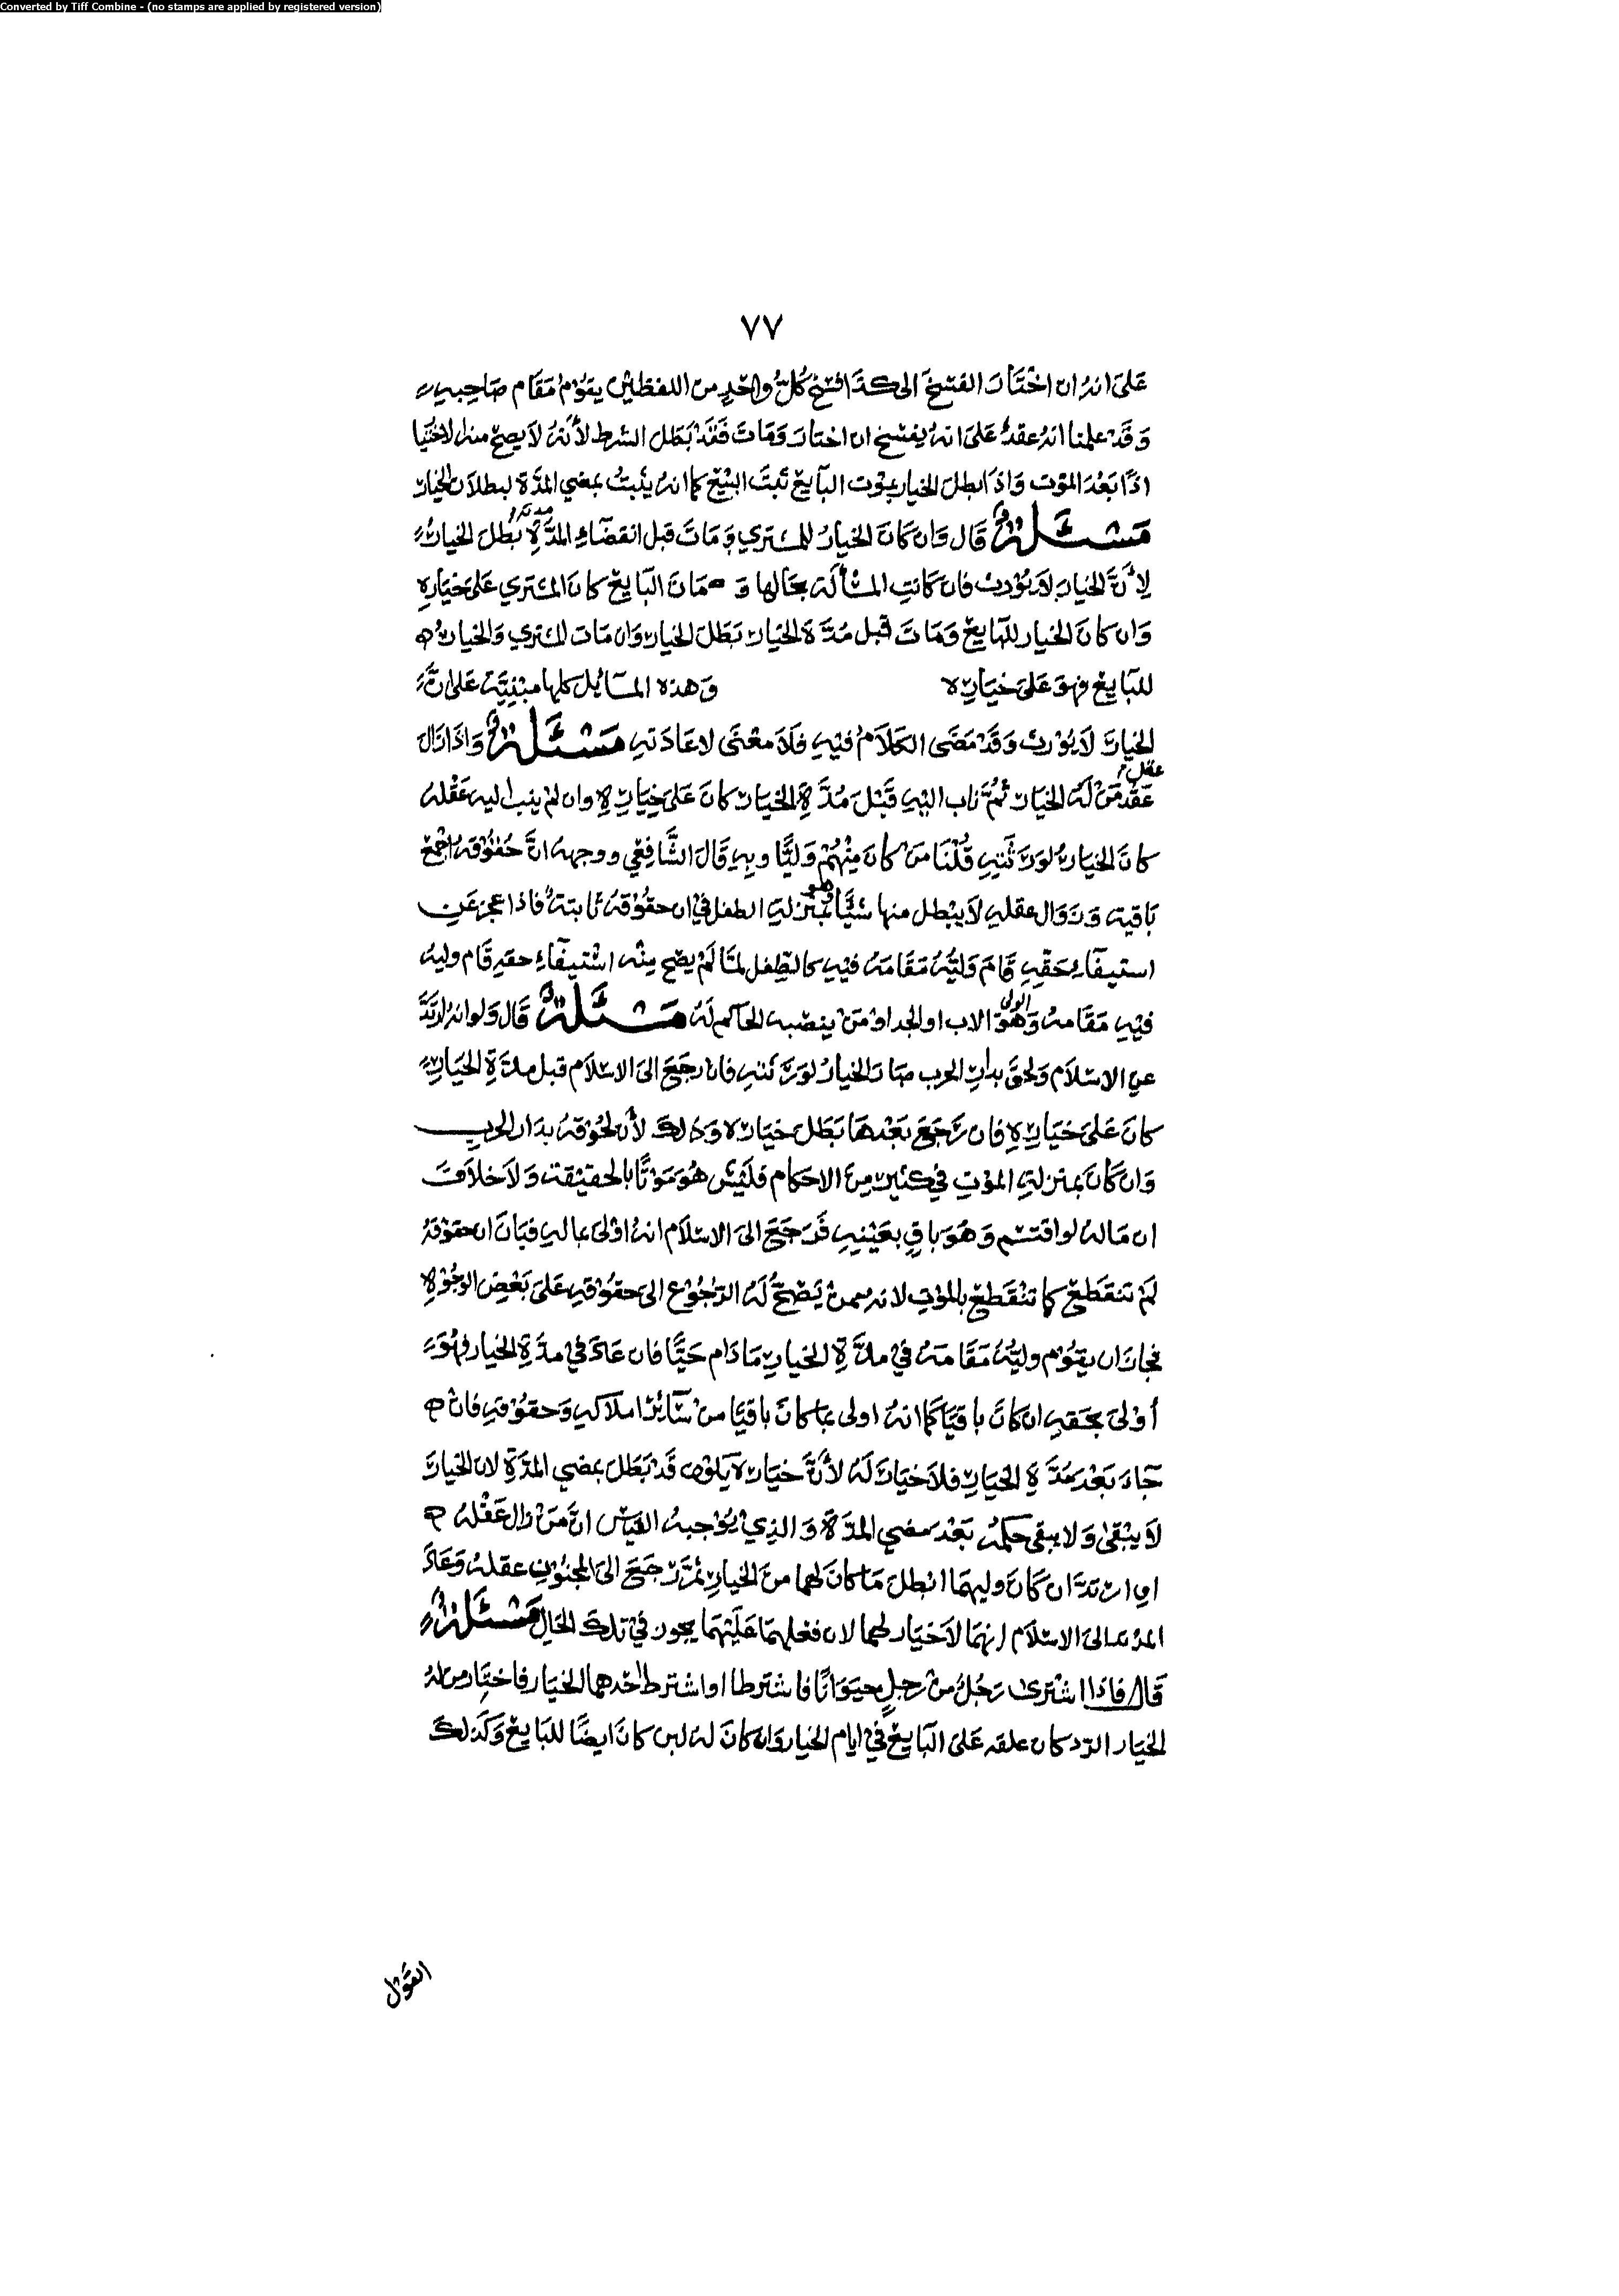 Converted by Tiff Combine - (no stamps are applied by registered version)
٧٧
على انه ان اختار الفسخ الى كذا افسخ كل واحد من اللفظين يقوم مقام صاحبه
وقد علمنا انه عقد على انه يفسخ ان اختار ومات فقد بطل الشرط لأنه لا يصح منه الاختيا
اذا بعد الموت واذا بطل الخيار بموت البايع ثبت البيع كما انه يثبت بمضي المدة لبطلان الخيار
مسئلة قال وان كان الخيار للمشتري ومات قبل انقضاء المدة بطل الخيار
لأن الخيار لا يورث فان كانت المسألة بحالها و مات البايع كان المشتري على خياره
وان كان الخيار للبايع ومات قبل مدة الخيار بطل الخيار وان مات المشتري والخيار
للبايع فهو على خياره وهذه المسائل كلها مبنية على ان
الخيار لا يورث وقد مضى الكلام فيه فلا معنى لاعادته مسئلة واذا زال
عقل
عقد من له الخيار ثم ثاب اليه قبل مدة الخيار كان على خياره وان لم يثب اليه عقله
كان الخيار لورثته قلنا من كان منهم وليا وبه قال الشافعي ووجهه ان حقوقه اجمع
باقية وزوال عقله لا يبطل منها شيئا وهو بمنزلة الطفل في ان حقوقه ثابتة فاذا عجز عن
استيفاء حقه قام وليه مقامه فيه كالطفل لما لم يصح منه استيفاء حقه قام وليه
فيه مقامه وهو الولي الاب او الجد او من ينصبه الحاكم له مسئلة قال ولو انه ارتد
عن الاسلام ولحق بدار الحرب صار الخيار لورثته فان رجع الى الاسلام قبل مدة الخيار
كان على خياره فان رجع بعدها بطل خياره وذلك لأن لحوقه بدار الحرب
وان كان بمنزلة الموت في كثير من الاحكام فليس هو موتا بالحقيقة ولا خلاف
ان ماله لو اقتسم وهو باق بعينه فرجع الى الاسلام انه اولى بماله فبان ان حقوقه
لم تنقطع كما تنقطع بالموت لانه ممن يصح له الرجوع الى حقوقه على بعض الوجوه
فجاز ان يقوم وليه مقامه في مدة الخيار ما دام حيا فان عاد في مدة الخيار فهو
أولى بحقه ان كان باقيا كما انه اولى بما كان باقيا من سائر املاكه وحقوقه فان
جاء بعد مدة الخيار فلا خيار له لأن خياره قد بطل بمضي المدة لان الخيار
لا يبقى ولا يبقى حكمه بعد مضي المدة والذي يوجبه القياس ان من زال عقله
او ارتد ان كان وليهما ابطل ما كان لهما من الخيار ثم رجع الى المجنون عقله وعاد
المرتد الى الاسلام انهما لا خيار لهما لان فعلهما عليهما يجوز في تلك الحال مسئلة
قال فاذا اشترى رجل من رجل حيوانا فاشترطا او اشترط احدهما الخيار فاختار من له
الخيار الرد كان علفه على البايع في ايام الخيار وان كان له لبن كان ايضا للبايع وكذلك
القول